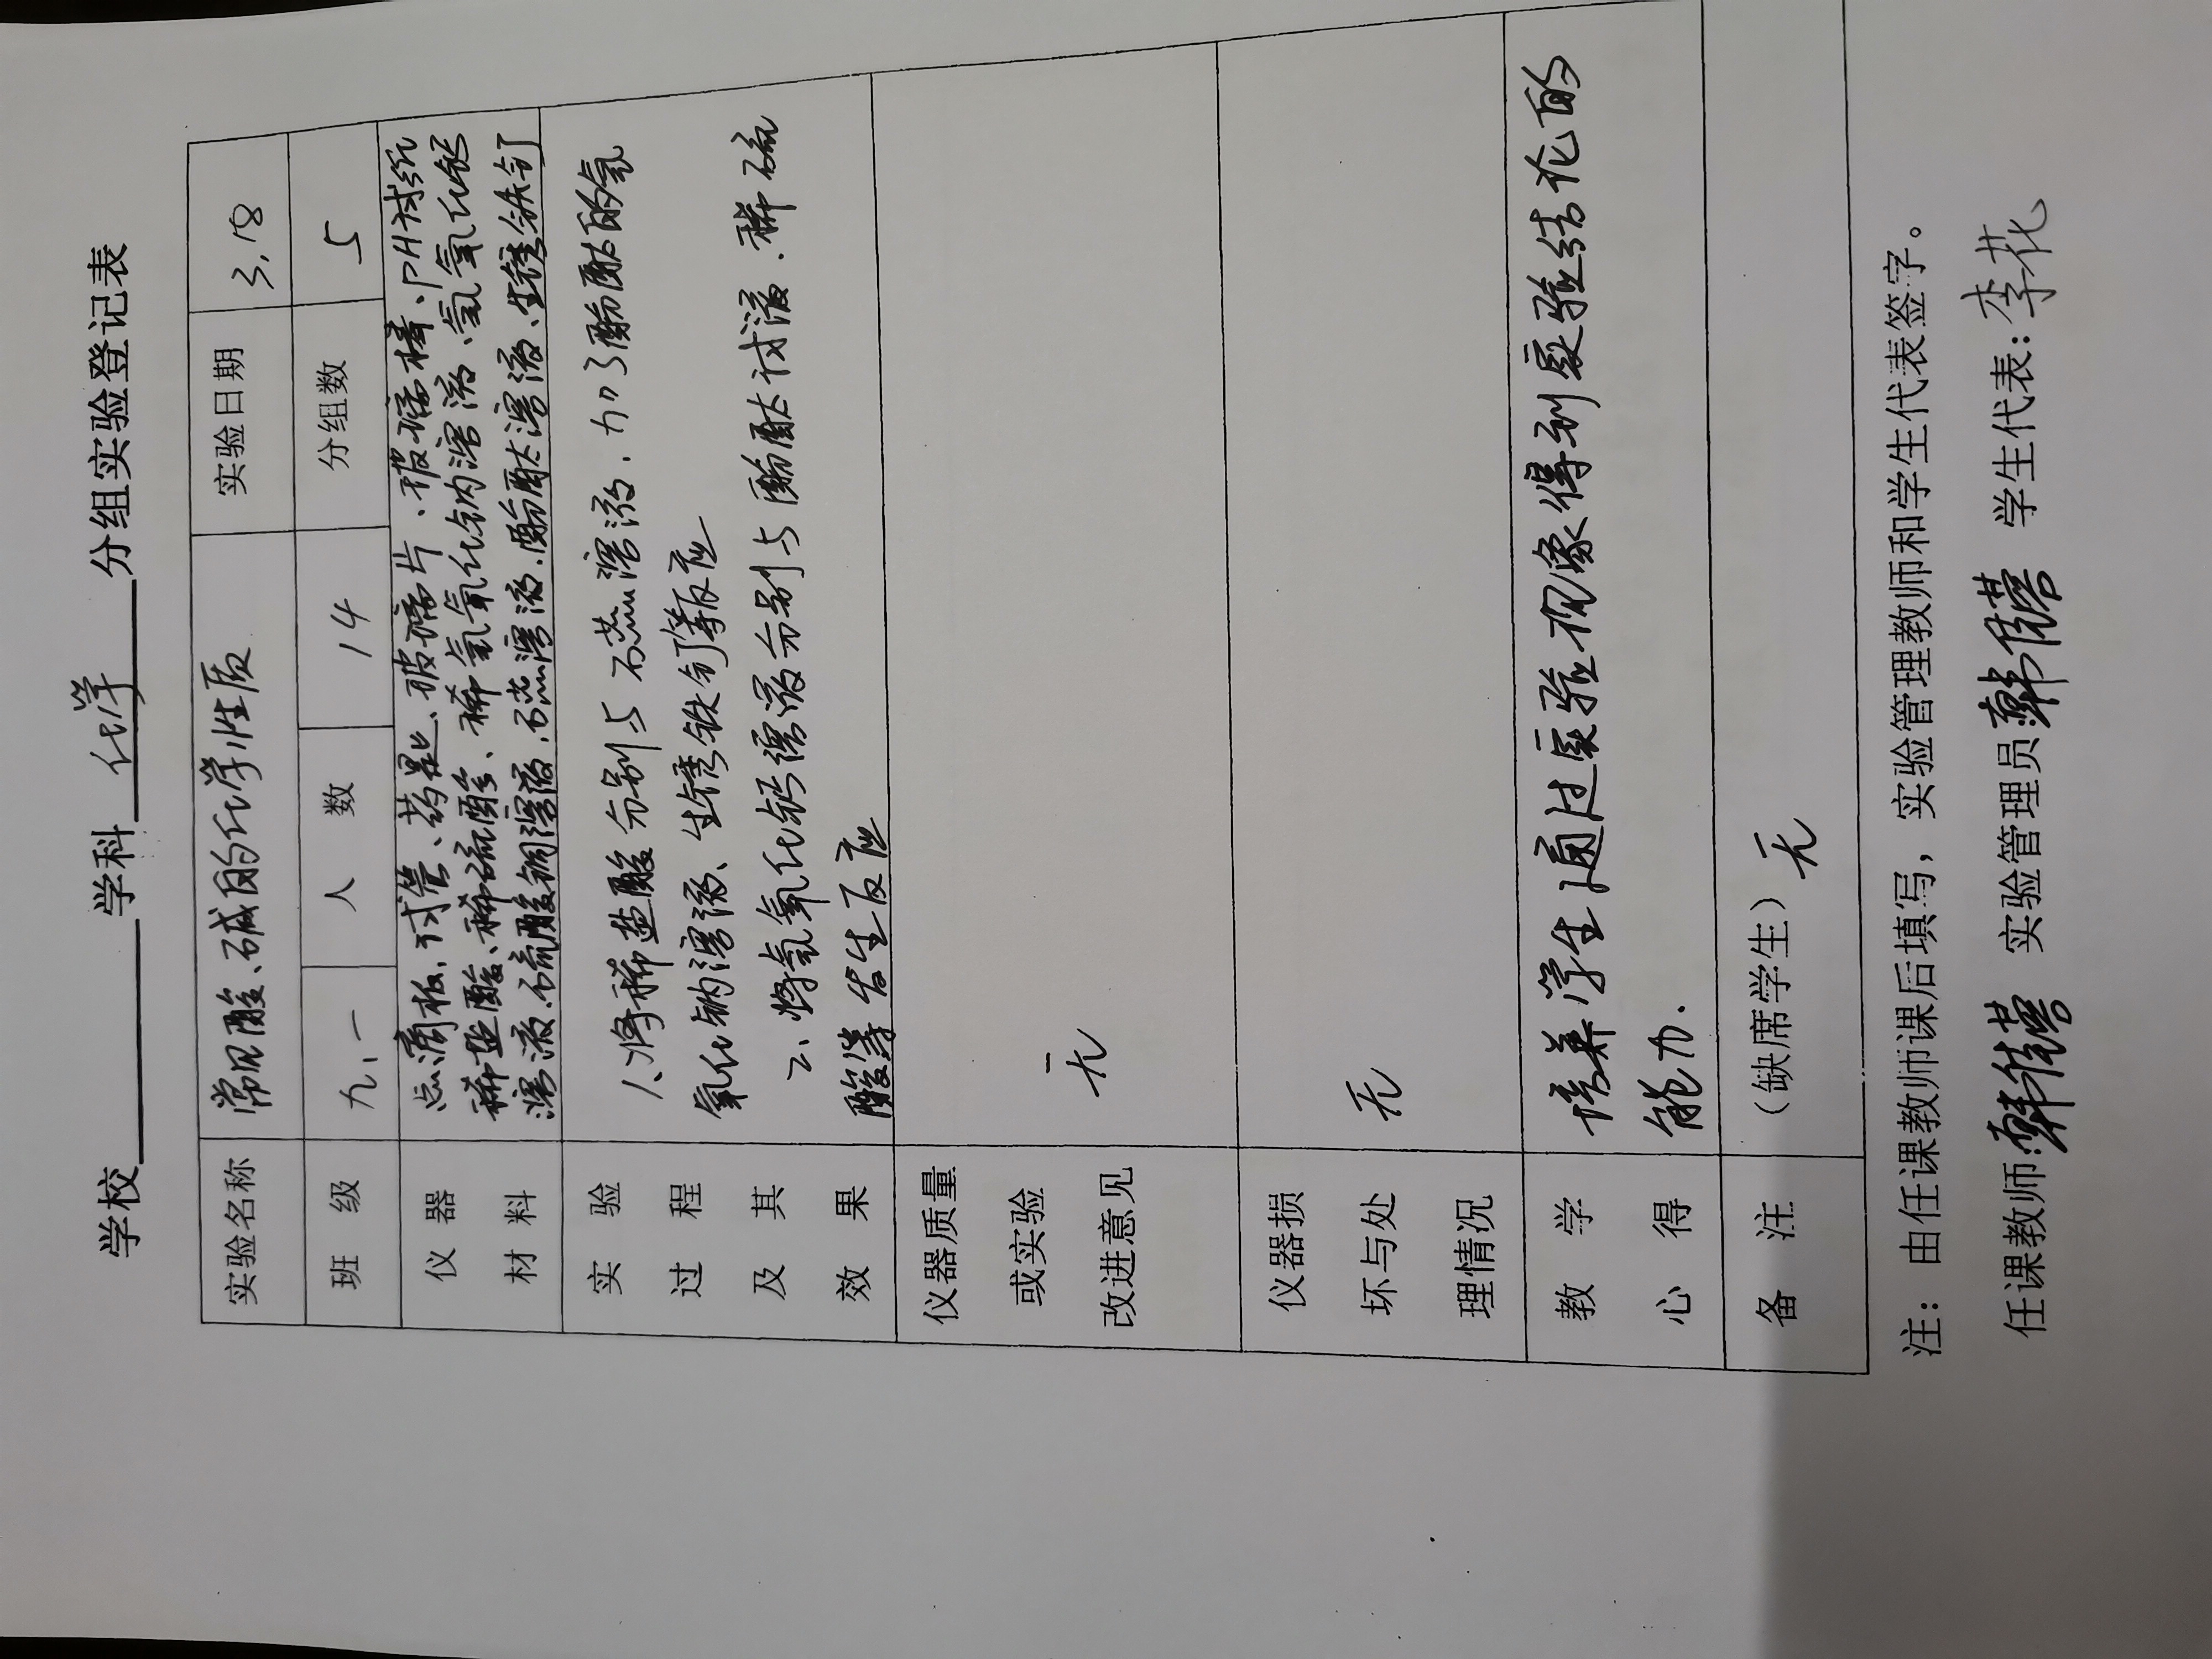 学校 学科 化学 分组实验登记表
实验名称 常见酸、碱的化学性质 实验日期 3.18
班级 九.一 人数 14 分组数 5
仪器 点滴板、试管、药匙、玻璃片、玻璃棒、PH试纸
材料 稀盐酸、稀硫酸、稀氢氧化钠溶液、氢氧化钙
溶液、硫酸铜溶液、石蕊溶液、酚酞溶液、生锈铁钉
实验 1、将稀盐酸分别与石蕊溶液、加了酚酞的氢
过程 氧化钠溶液、生锈铁钉等反应
及其 2、将氢氧化钙溶液分别与酚酞试液、稀硫
效果 酸等发生反应
仪器质量
或实验 无
改进意见
仪器损
坏与处 无
理情况
教学 培养学生通过实验现象得到实验结论的
心得 能力.
备注 (缺席学生) 无
注：由任课教师课后填写，实验管理教师和学生代表签字。
任课教师: 实验管理员 学生代表:李花